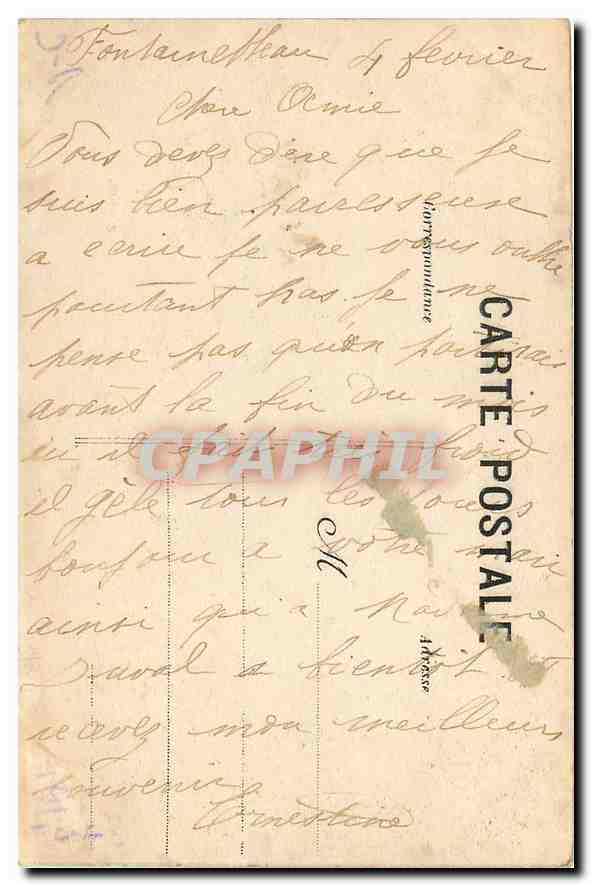 Fontainebleau 4 fevrier
Chere Amie
Vous devez dire que je
suis bien paresseuse
a ecrire je ne vous oublie
pourtant pas je ne
pense pas qu'on partirais
avant la fin du mois
ou il fait très froid
il gèle tous les jours
bonjour a votre mari
ainsi qu'a Madame
Duval a bientot
recevez mon meilleurs
souvenir
Ernestine
CARTE POSTALE
Correspondance
Adresse
M
CPAPHIL